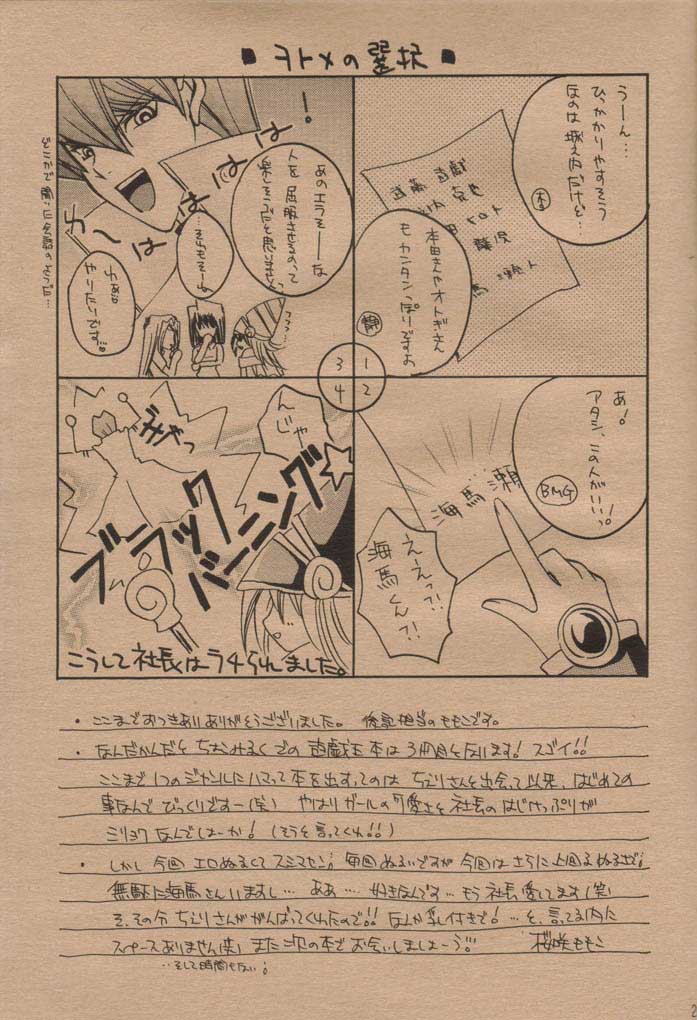 ■ ヲトメの選択 ■
うーん…
ひっかかりやすそう
なのは城之内だけど…
杏
武藤 遊戯
本田 ヒロト
本田さんやオトぎさん
もカンタンっぽりですよ
静
1
2
3
4
あ!
アタシ、この人がいいっ。
BMG
海馬 瀬
えーえっ?!
海馬くん?!
!
は
は
は
は
あのエラそーな
人を屈服させるのって
楽しそうだと思いません
…それもそーね
わぁ…
やりたいです。
どこかで聞いた会話のようだ…
んじゃ
ブラック
バーニング☆
こうして社長はラチられました。
・ここまでおつきありありがとうございました。 後記担当のももこです。
・なんだかんだとちむみるくでの遊戯王本は3冊目を反います! スゴイ!!
ここまで1つのジャンルにハマって本を出すってのはちょりさんと出会って以来、はじめての
事なんでびっくりですー(笑) やはりガールの可愛さと社長のはじけっぷりが
ミリョクなんでしょーか! (そうと言ってくれ!!)
・しかし今回エロぬるくてスミマセン! 毎回ぬるいですが今回はさらに上回るぬるさで;
無駄に海馬さんいますし… ああ… 好きなんです… もう社長愛してます(笑)
そ、その分ちょりさんががんばってくれたので!! なんか乳付きで! …と、言ってる内に
スペースありません(笑) また次の本でお会いしましょーう!! 桜咲ももこ
…そして時間もない;
2